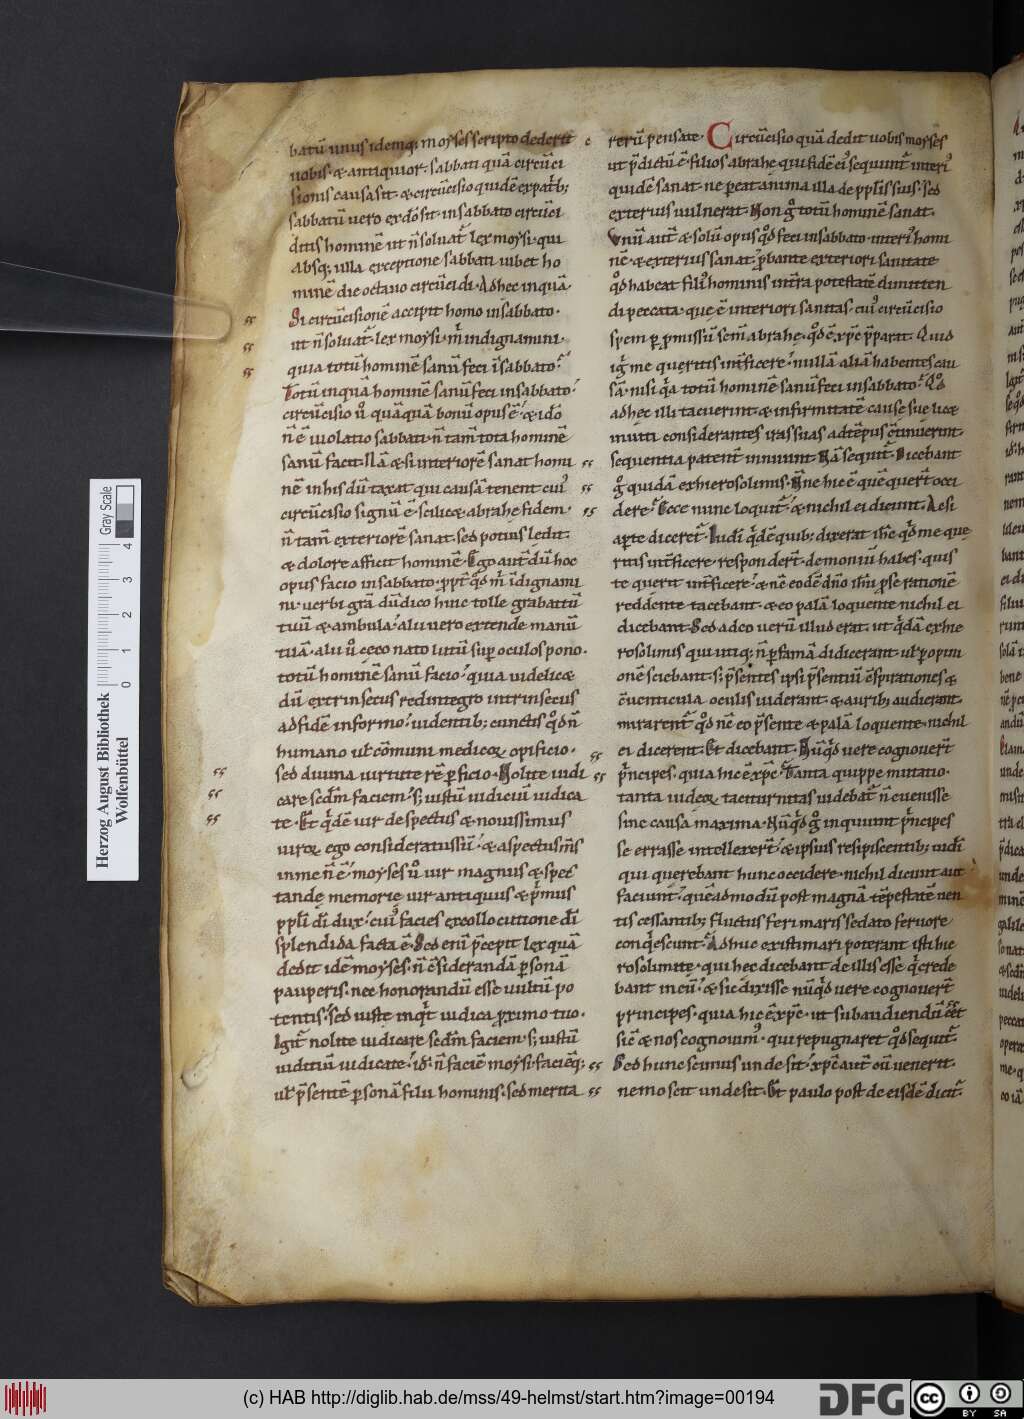 batū unus idemq; moyses scripto dederit
uobis· & antiquior· sabbati quā circūci
sionis causa sit· & circūcisio quidē ex patrib;
sabbatū uero ex dō sit· in sabbato circūci
ditis hominē ut n̄ soluat̄ lex moysi· qui
absq; ulla exceptione sabbati iubet ho
minē die octauo circūcidi· Adhec inquā·
Si circūcisionē accipit homo in sabbato·
ut n̄ soluat̄ lex moysi· m̄ indignamini·
quia totū hominē sanū feci ī sabbato?
Totū inquā hominē sanū feci in sabbato·
circūcisio u͛o quāquā bonū opus ē· & idō
n̄ ē uiolatio sabbati· n̄ tam̄ tota hominē
sanū facit· Nā & si interiorē sanat homi
nē in his dū taxat qui causā tenent cui᷒
circūcisio signū ē· scilicæ abrahę fidem·
n̄ tam̄ exteriorē sanat· sed potius ledit·
& dolore afficit hominē· Ego aut̄ dū hoc
opus facio in sabbato· ppt̄ qd m̄ īdignami
ni· uerbi grā dū dico huic tolle grabattū
tuū & ambula· alii uero extende manū
tuā· alii u͛o ceco nato lutū sup̄ oculos pono·
totū hominē sanū facio· quia uidelicæ
dū extrinsecus redintegro intrinsecus
ad fidē informo· uidentib; cunctis qd n̄
humano ul̄ cōmuni medicoꝝ opificio·
sed diuina uirtute rē pficio· Nolite iudi
care scdm̄ faciem· s; iustū iudiciū iudica
te· Et qdē uir despectus & nouissimus
uiroꝝ ego consideratus sū· & aspectus m̄s
in me n̄ ē· moyses u͛o uir magnus & spec
tandę memorię uir antiquus & p̄mus
ppl̄i dī dux· cui᷒ facies ex collocutione dī
splendida facta ē· Sed enī p̄cepit lex quā
dedit idē moyses· n̄ ēsiderandā psonā
pauperis· nec honorandū esse uultū po
tentis· sed iuste inqt iudica proximo tuo·
Igit̄ nolite iudicare scdm̄ faciem· s; iustū
iuditiū iudicate· id· n̄ faciē moysi facięq;
ul̄ p̄sentē psonā filii hominis· sed merita
rerū pensate· Circūcisio quā dedit uobis moyses
ut p̄dictū ē· filios abrahę qui fidē ei᷒ sequunt̄ interi᷒
quidē sanat· ne pereat anima illa de ppl̄is suis· sed
exterius uulnerat· Non g̊ totū hominē sanat·
Vnū aut̄ & solū opus qd feci in sabbato· interi᷒ homi
nē & exterius sanat· pbante exteriori sanitate
qd habeat fili᷒ hominis int̄ra potestatē dimitten
di peccata· que ē interiori sanitas· cui᷒ circūcisio
spem p pmissū semī abrahę· qd ē xp̄c p̄parat· Quid
ig̊ me queritis int̄ficere· nullā aliā habentes cau
sā· nisi qa totū hominē sanū feci in sabbato?
adhec illi tacuerint· & infirmitatē cause sue licæ
muiti considerantes iras suas ad tēpus ētinuerint·
sequentia patent̄ innuunt· Nā sequit̄· Dicebant
g̊ quidā ex hierosolimis· Nne hic ē quē quer̄t occi
dere? Ecce nunc loquit̄· & nichil ei dicunt· Ac si
apte diceret̄· Iudi qdē quib; dixerat ih̄c qd me que
ritis int̄ficere· responder̄t· demoniū habes· quis
te querit int̄ficere· & nē eodē dn̄o ih̄u p se rationē
reddente tacebant· & eo palā loquente nichil ei
dicebant· Sed adeo uerū illud erat· ut qdā ex hie
rosolimis qui utiq; n̄ p famā didicerant ul̄ p opini
onē sciebant· s; ipsi p̄sentes ipsi p̄sentiū ēspirationes &
ēuenticula oculis uiderant· & aurib; audierant·
mirarent̄ qd nē eo p̄sente & palā loquente nichil
ei dicerent· Et dicebant· Nūqd uere cognouer̄t
p̄ncipes· quia hic ē xp̄c· Tanta quippe mutatio·
tanta iudeoꝝ taciturnitas uidebat̄ n̄ euenisse
sine causa maxima· Nūqd g̊ inquiunt p̄ncipes
se errasse intellexer̄t· & ipsius resipiscentib; iudi
qui querebant hunc occidere· nichil dicunt aut
faciunt· quēadmodū post magnā tēpestatē uen
tis cessantib; fluctus feri maris sedato feruore
conqescunt· Adhuc existimari poterant isti hie
rosolimitę· qui hec dicebant de illis esse q crede
bant in eū· & sic dixisse nūqd uere cognouer̄t
principes· quia hic ē xp̄c· ut subaudiendū ēēt
sic & nos cognouim᷒· qui repugnaret qd sequit̄·
Sed hunc scimus unde sit· xp̄c aut̄ cū uenerit·
nemo scit unde sit· Et paulo post de eisdē dicit̄·
Herzog August Bibliothek
Wolfenbüttel
0 1 2 3 4
Gray Scale
(c) HAB http://diglib.hab.de/mss/49-helmst/start.htm?image=00194
DFG
cc BY SA